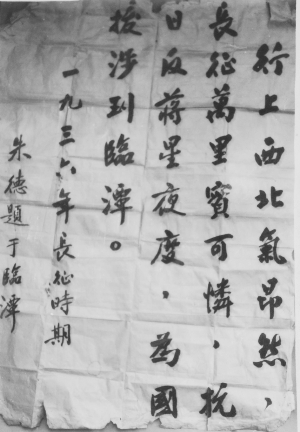 行上西北氣昂然，
長征萬里實可憐，抗
日反蔣星夜度，為國
授涉到臨潭。
一九三六年長征時期
朱德題于臨潭